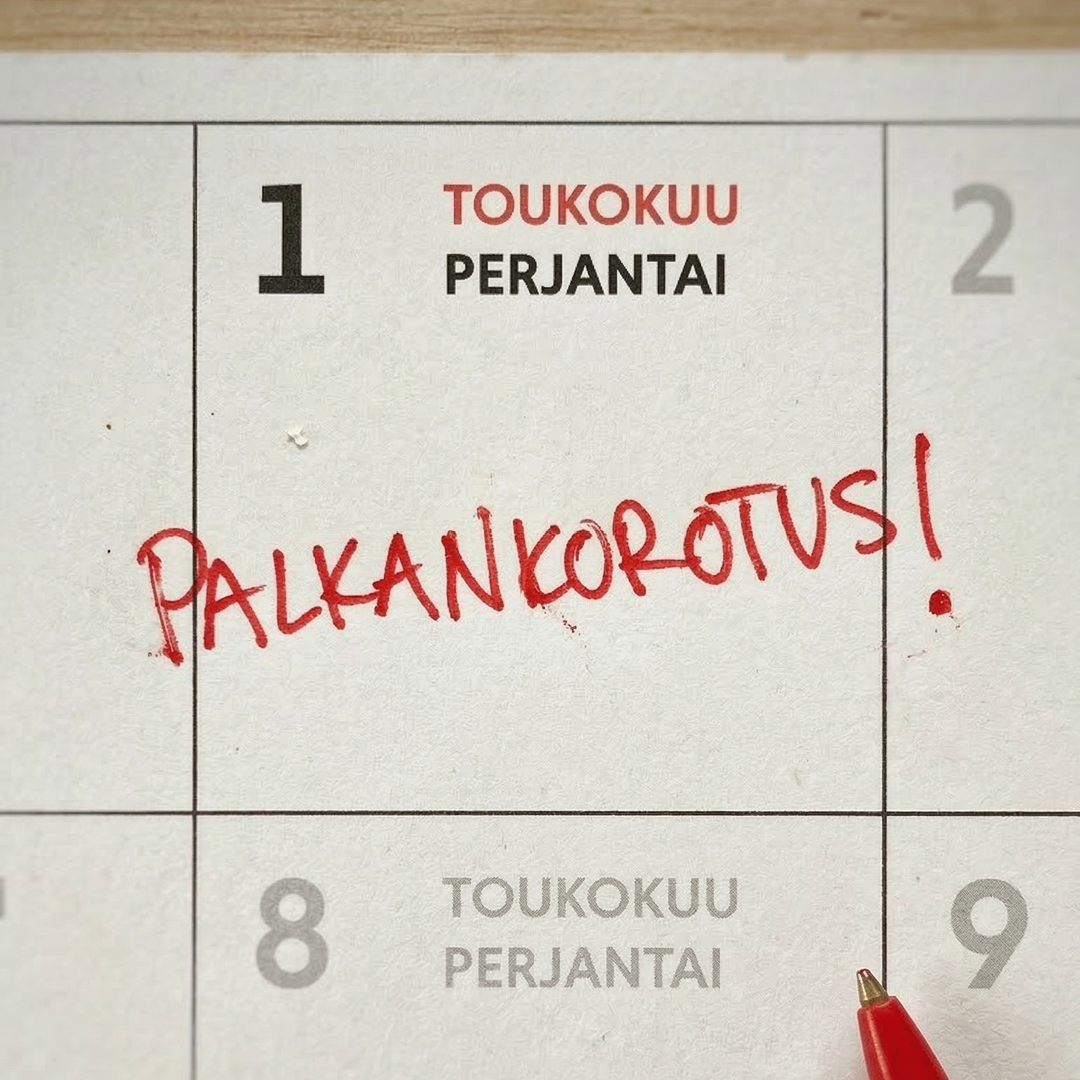 1 TOUKOKUU 2
PERJANTAI
PALKANKOROTUS!
8 TOUKOKUU 9
PERJANTAI